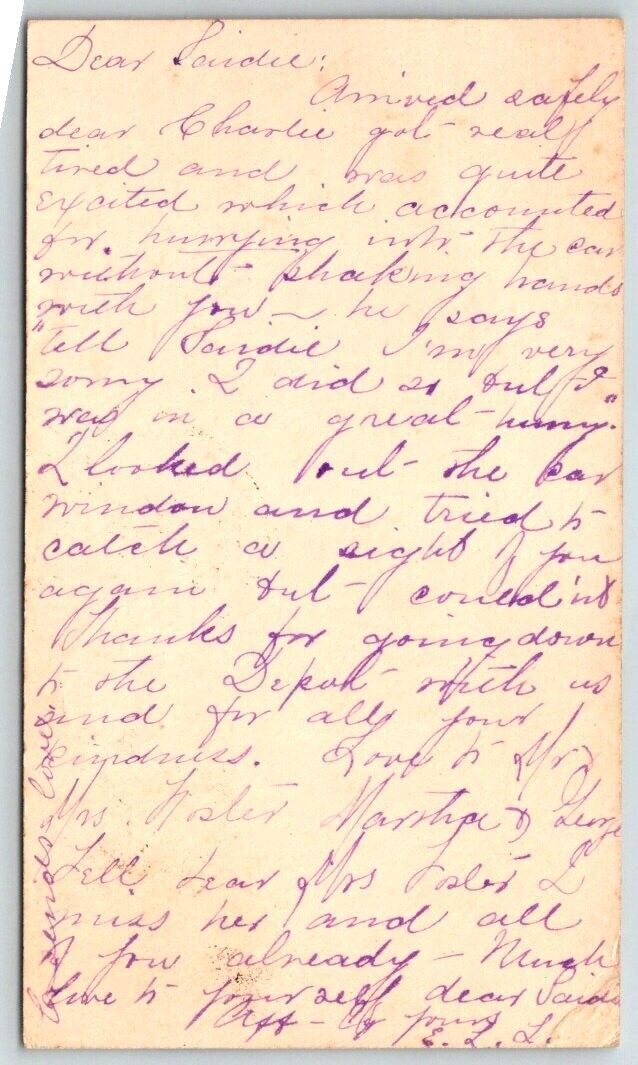 Dear Saidie:
Arrived safely
dear Charlie got real
tired and was quite
excited which accounted
for hurrying into the car
without shaking hands
with you — he says
"tell Saidie I'm very
sorry I did so but I
was in a great hurry."
I looked out the car
window and tried to
catch a sight of you
again but could'nt
Thanks for going down
to the Depot with us
and for all your
kindness. Love to Mr &
Mrs. Foster Martha & George
Tell dear Mrs Foster I
miss her and all
of you already — Much
love to yourself dear Saidie
Aff — yours
E. L. L.
sends love